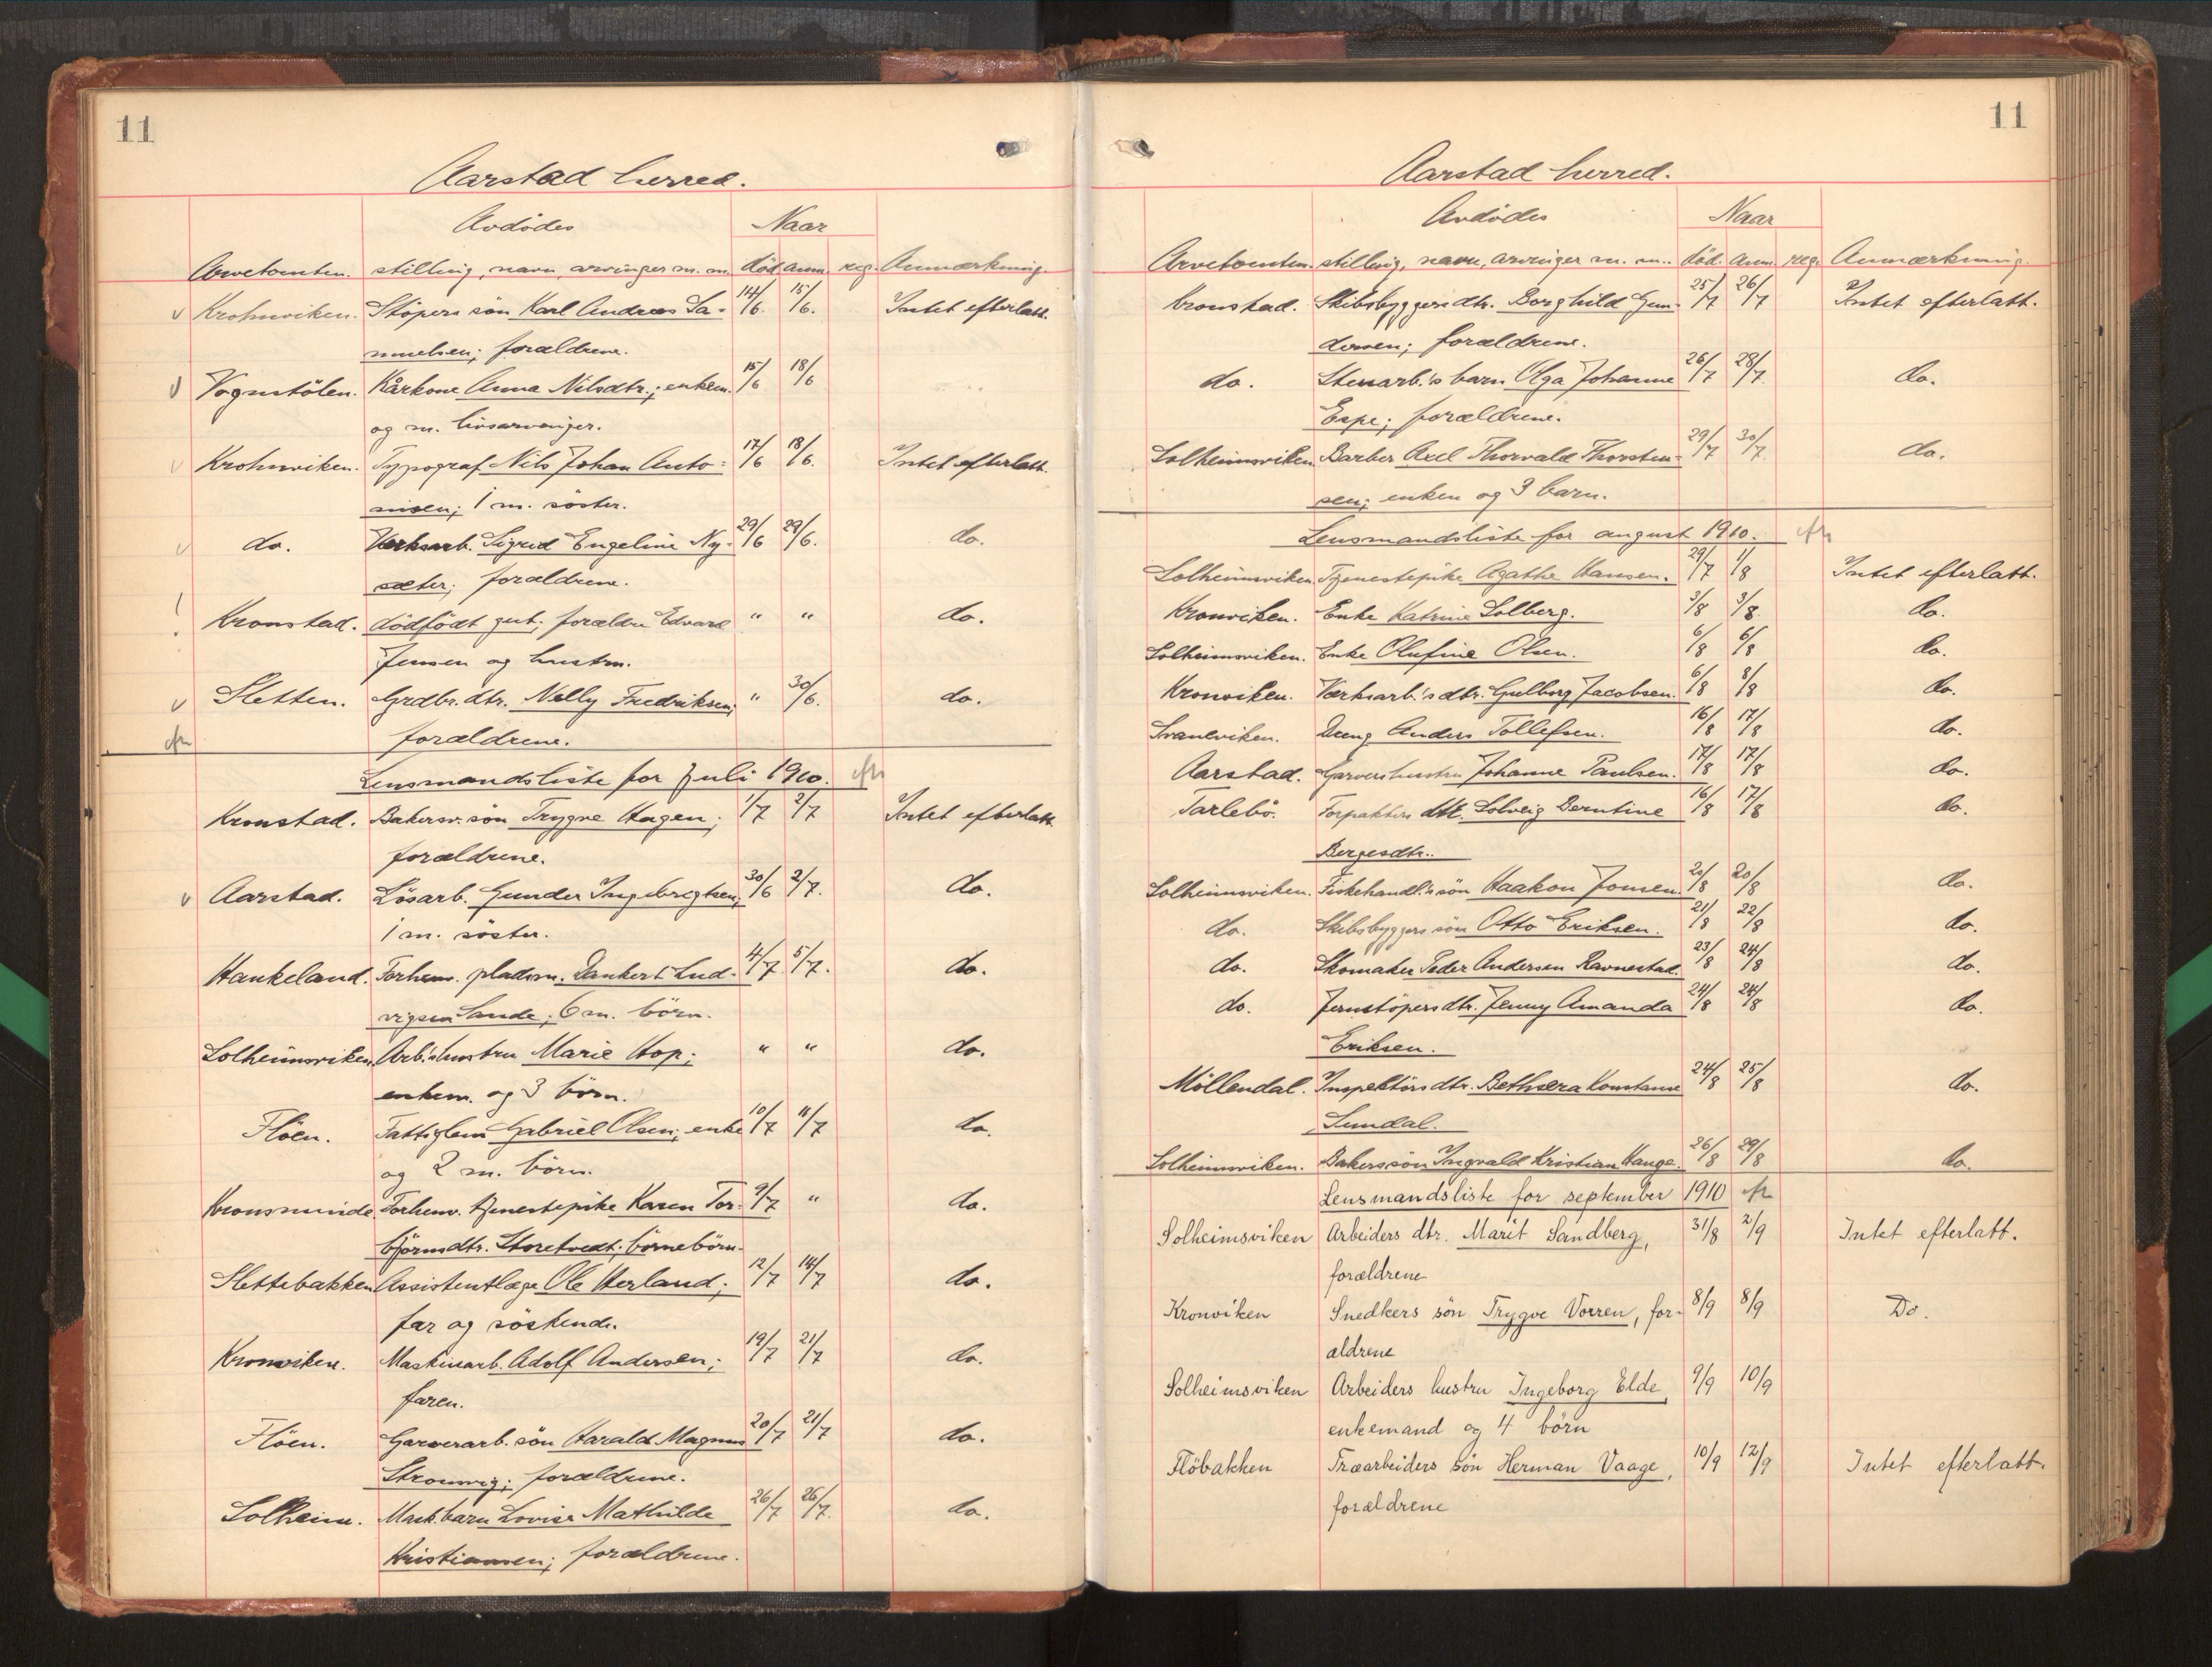 11
Aarstad herred.
Avdödes Naar
Arvetomten. stilling, navn, arvinger m. m. död anm. reg. Anmærkning.
v Krohnviken. Stöpers sön Karl Andreas Sa- 14/6. 15/6. Intet efterlatt.
muelsen; forældrene.
v Vognstölen. Kårkone Anna Nilsdtr.; enkem. 15/6 18/6
og m. livsarvinger.
v Krohnviken. Typograf Nils Johan Anto- 17/6 18/6. Intet efterlatt.
nisen; 1 m. söster.
v do. Værksarb. Sigrid Engeline Ny- 29/6 29/6. do.
sæter; forældrene.
! Kronstad. dödfödt gut; forældre Edvard " " do.
Jensen og hustru.
v Sletten. Grdbr. dtr. Nelly Fredriksen; " 30/6. do.
efn forældrene.
Lensmandsliste for Juli 1910. efn
Kronstad. Bakersv. sön Trygve Hagen; 1/7 2/7 Intet efterlatt.
forældrene.
v Aarstad. Lösarb. Gunder Ingebrigtsen; 30/6 2/7. do.
1 m. söster.
Haukeland. Forhenv. pladsm. Dankert Lud- 4/7. 5/7. do.
vigsen Sande; 6 m. börn.
Solheimsviken. Arb.s hustru Marie Hop; " " do.
enkem. og 3 börn.
Flöen. Fattiglem Gabriel Olsen; enke 10/7 11/7 do.
og 2 m. börn.
Kronsminde. Forhenv. tjenestepike Karen Tor- 9/7 " do.
björnsdtr. Storetvedt; börnebörn.
Slettebakken Assistentlæge Ole Herland; 12/7 14/7 do.
far og söskende.
Kronviken. Maskinarb. Adolf Andersen; 19/7 21/7 do.
faren.
Flöen. Garverarb. sön Harald Magnus 20/7 21/7 do.
Strömvig; forældrene.
Solheim. Mask. barn Lovise Mathilde 26/7 26/7. do.
Kristiansen; forældrene.
11
Aarstad herred.
Avdödes Naar
Arvetomten. stilling, navn, arvinger m. m. död. anm. reg. Anmærkning.
Kronstad. Skibsbyggers dtr. Borghild Gun- 25/7 26/7 Intet efterlatt.
dersen; forældrene.
do. Stenarb.'s barn Olga Johanne 26/7 28/7. do.
Espe; forældrene.
Solheimsviken Barber Axel Thorvald Thorsten- 29/7 30/7. do.
sen; enken og 3 barn.
Lensmandsliste for august 1910. efn
Solheimsviken. Tjenestepike Agathe Hansen. 29/7 1/8 Intet efterlatt.
Kronviken. Enke Katrine Solberg. 3/8 3/8. do.
Solheimsviken. Enke Olufine Olsen. 6/8 6/8 do.
Kronviken. Værksarb.'s dtr. Gulborg Jacobsen. 6/8 8/8 do.
Svaneviken. Dreng Anders Tollefsen. 16/8 17/8 do.
Aarstad. Garvers hustru Johanne Paulsen. 17/8 17/8 do.
Tarlebö. Forpakters dtr. Solveig Berntine 16/8 17/8 do.
Bergesdtr.
Solheimsviken. Fiskehandl.'s sön Haakon Jonsen 20/8 20/8 do.
do. Skibsbyggers sön Otto Eriksen. 21/8 22/8 do.
do. Skomaker Peder Andersen Ravnestad. 23/8 24/8 do.
do. Jernstöpers dtr. Jenny Amanda 24/8 24/8 do.
Eriksen.
Möllendal. Inspektörs dtr. Bethzera Konstanse 24/8 25/8 do.
Sundal.
Solheimsviken. Bakers sön Ingvald Kristian Hauge. 26/8 29/8 do.
Lensmandsliste for september 1910 efn
Solheimsviken Arbeiders dtr. Marit Sandberg, 31/8 2/9 Intet efterlatt.
forældrene
Kronviken Snedkers sön Trygve Vorren, for- 8/9 8/9 Do.
ældrene
Solheimsviken Arbeiders hustru Ingeborg Elde, 9/9 10/9
enkemand og 4 börn
Flöbakken Træarbeiders sön Herman Vaage, 10/9 12/9 Intet efterlatt.
forældrene